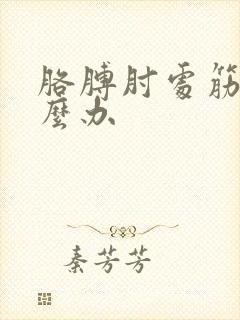 胳膊肘处筋
麼办
秦芳芳